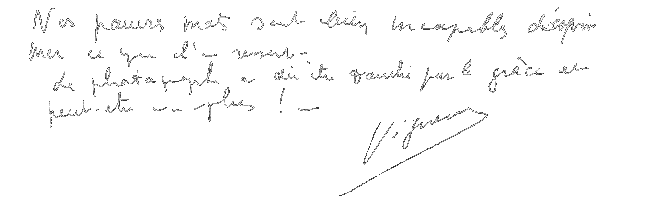 Nos pauvres mots sont bien incapables d'expri
mer ce que l'on ressent.
Le photographe a dû être touché par la grâce en
peut-être un plus ! _